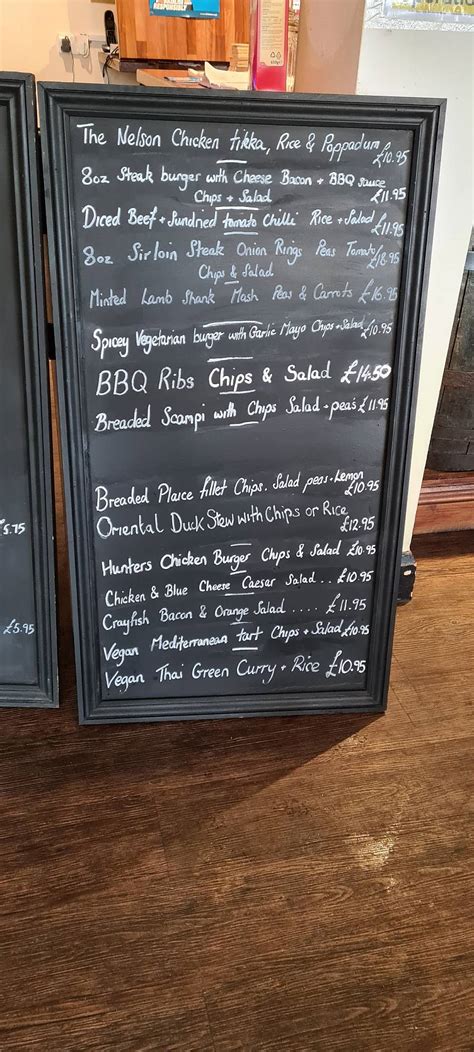 The Nelson Chicken tikka, Rice & Poppadum
£10.95
8oz Steak burger with Cheese Bacon + BBQ sauce
Chips + Salad £11.95
Diced Beef + Sundried tomato Chilli Rice + Salad
£11.95
8oz Sirloin Steak Onion Rings Peas Tomato
Chips & Salad £18.95
Minted Lamb Shank Mash Peas & Carrots £16.95
Spicey Vegetarian burger with Garlic Mayo Chips + Salad £10.95
BBQ Ribs Chips & Salad £14.50
Breaded Scampi with Chips Salad + peas £11.95
Breaded Plaice fillet Chips. Salad peas + Lemon
£10.95
Oriental Duck Stew with Chips or Rice
£12.95
Hunters Chicken Burger Chips & Salad £10.95
Chicken & Blue Cheese Caesar Salad .. £10.95
Crayfish Bacon & Orange Salad .... £11.95
Vegan Mediterranean tart Chips + Salad £10.95
Vegan Thai Green Curry + Rice £10.95
5.75
£5.95